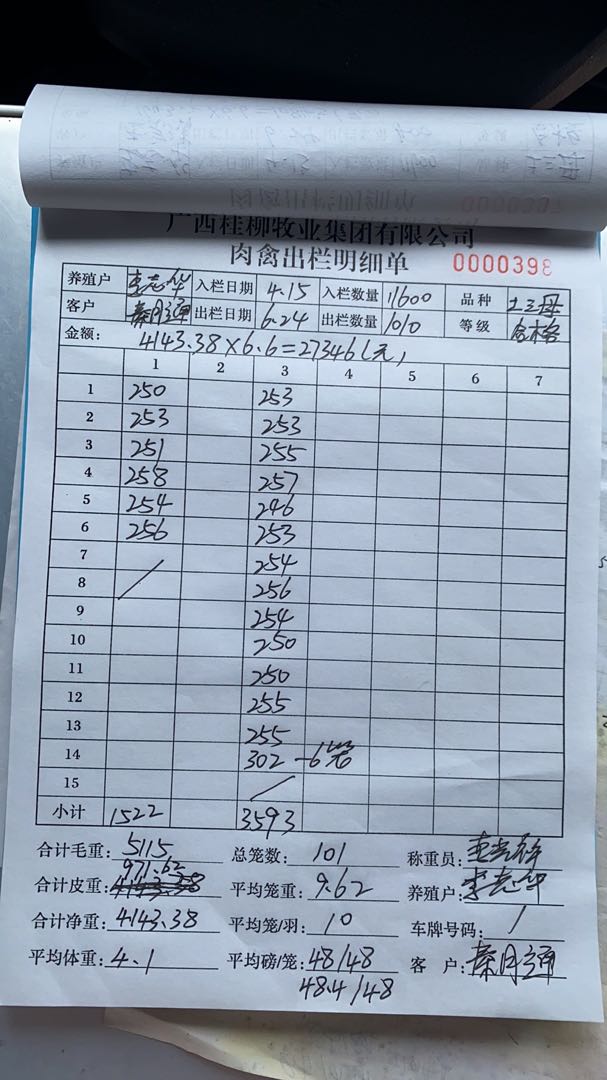 广西桂柳牧业集团有限公司
肉禽出栏明细单 0000398
养殖户 李志华 入栏日期 4.15 入栏数量 11600 品种 土三母
客户 秦月通 出栏日期 6.24 出栏数量 1010 等级 合格
金额: 4143.38×6.6=27346(元)
1 2 3 4 5 6 7
1 250 253
2 253 253
3 251 255
4 258 257
5 254 246
6 256 253
7 / 254
8 256
9 254
10 250
11 250
12 255
13 255
14 302 -6笼
15 /
小计 1522 3593
合计毛重: 5115 总笼数: 101 称重员:
合计皮重: 971.62 平均笼重: 9.62 养殖户: 李志华
合计净重: 4143.38 平均笼/羽: 10 车牌号码: /
平均体重: 4.1 平均磅/笼: 48/48 客 户: 秦月通
48.4/48